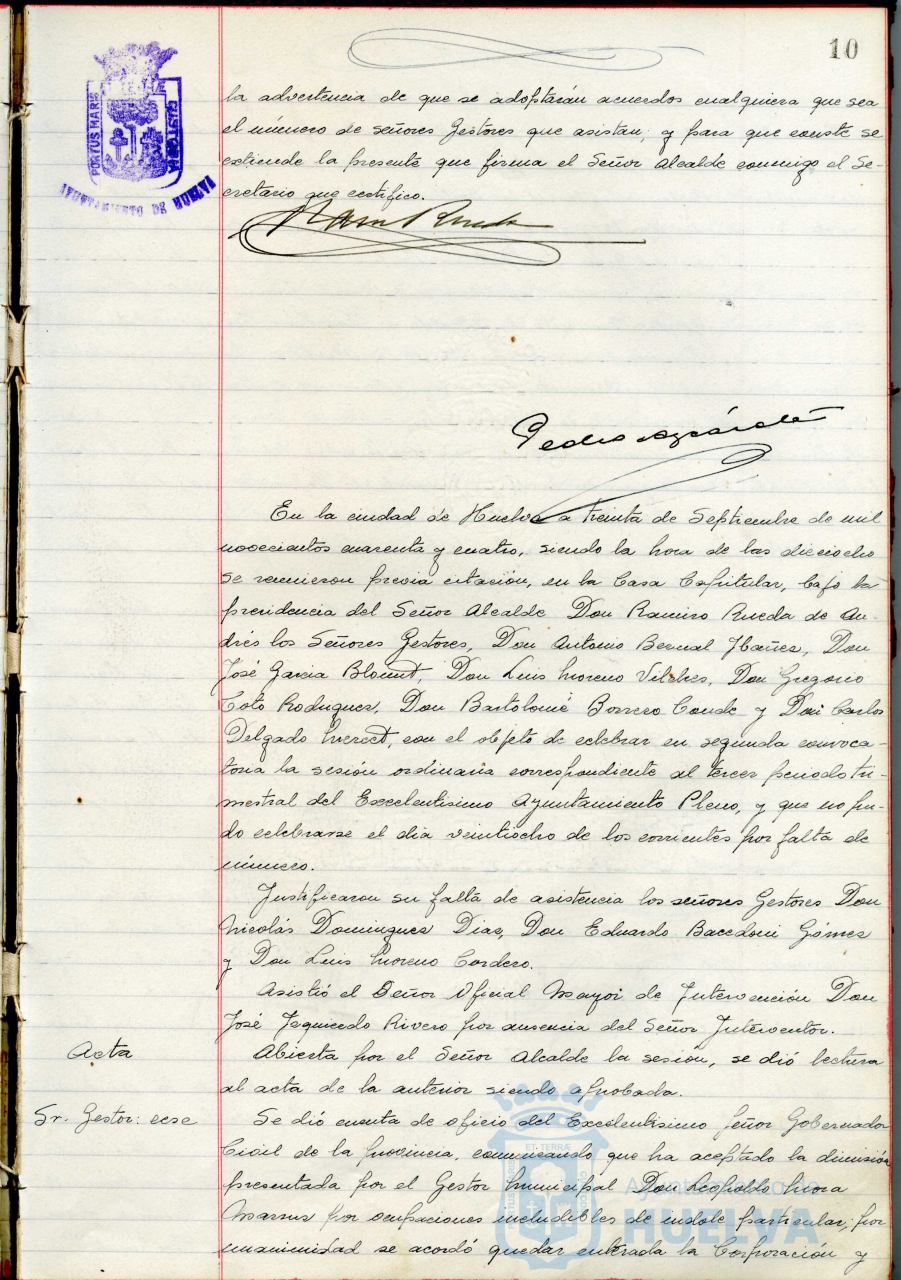 10
PORTUS MARIS
ET TERRÆ
CUSTODIA
AYUNTAMIENTO DE HUELVA
la advertencia de que se adoptarán acuerdos cualquiera que sea
el número de señores Gestores que asistan; y para que conste se
extiende la presente que firma el Señor Alcalde conmigo el Se-
cretario que certifico.
Ram Rueda
Pedro
En la ciudad de Huelva a treinta de Septiembre de mil
novecientos cuarenta y cuatro, siendo la hora de las dieciocho
se reunieron previa citación, en la Casa Capitular, bajo la
presidencia del Señor Alcalde Don Ramiro Rueda de An-
drés los Señores Gestores, Don Antonio Bernal Ibañez, Don
José Garcia Blount, Don Luis Moreno Vilches, Don Gregorio
Coto Rodriguez, Don Bartolomé Borrero Conde y Don Carlos
Delgado, con el objeto de celebrar en segunda convoca-
toria la sesión ordinaria correspondiente al tercer periodo tri-
mestral del Excelentisimo Ayuntamiento Pleno, y que no pu-
do celebrarse el dia veintiocho de los corrientes por falta de
número.
Justificaron su falta de asistencia los señores Gestores Don
Nicolás Dominguez Diaz, Don Eduardo Bacedoni Gómez
y Don Luis Moreno Cordero.
Asistió el Señor Oficial Mayor de Intervención Don
José Izquierdo Rivero por ausencia del Señor Interventor.
Acta
Abierta por el Señor Alcalde la sesión, se dió lectura
al acta de la anterior siendo aprobada.
Sr. Gestor: cese
Se dió cuenta de oficio del Excelentisimo Señor Gobernador
Civil de la provincia, comunicando que ha aceptado la dimisión
presentada por el Gestor Municipal Don Leopoldo Mora
por ocupaciones ineludibles de indole particular; por
unanimidad se acordó quedar enterada la Corporación y
Ayuntamiento de
HUELVA